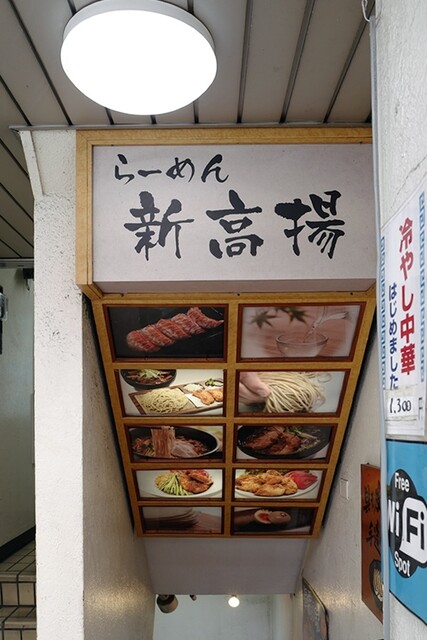 らーめん
新高揚
冷やし中華
はじめました
1,300
Free
WiFi
Spot